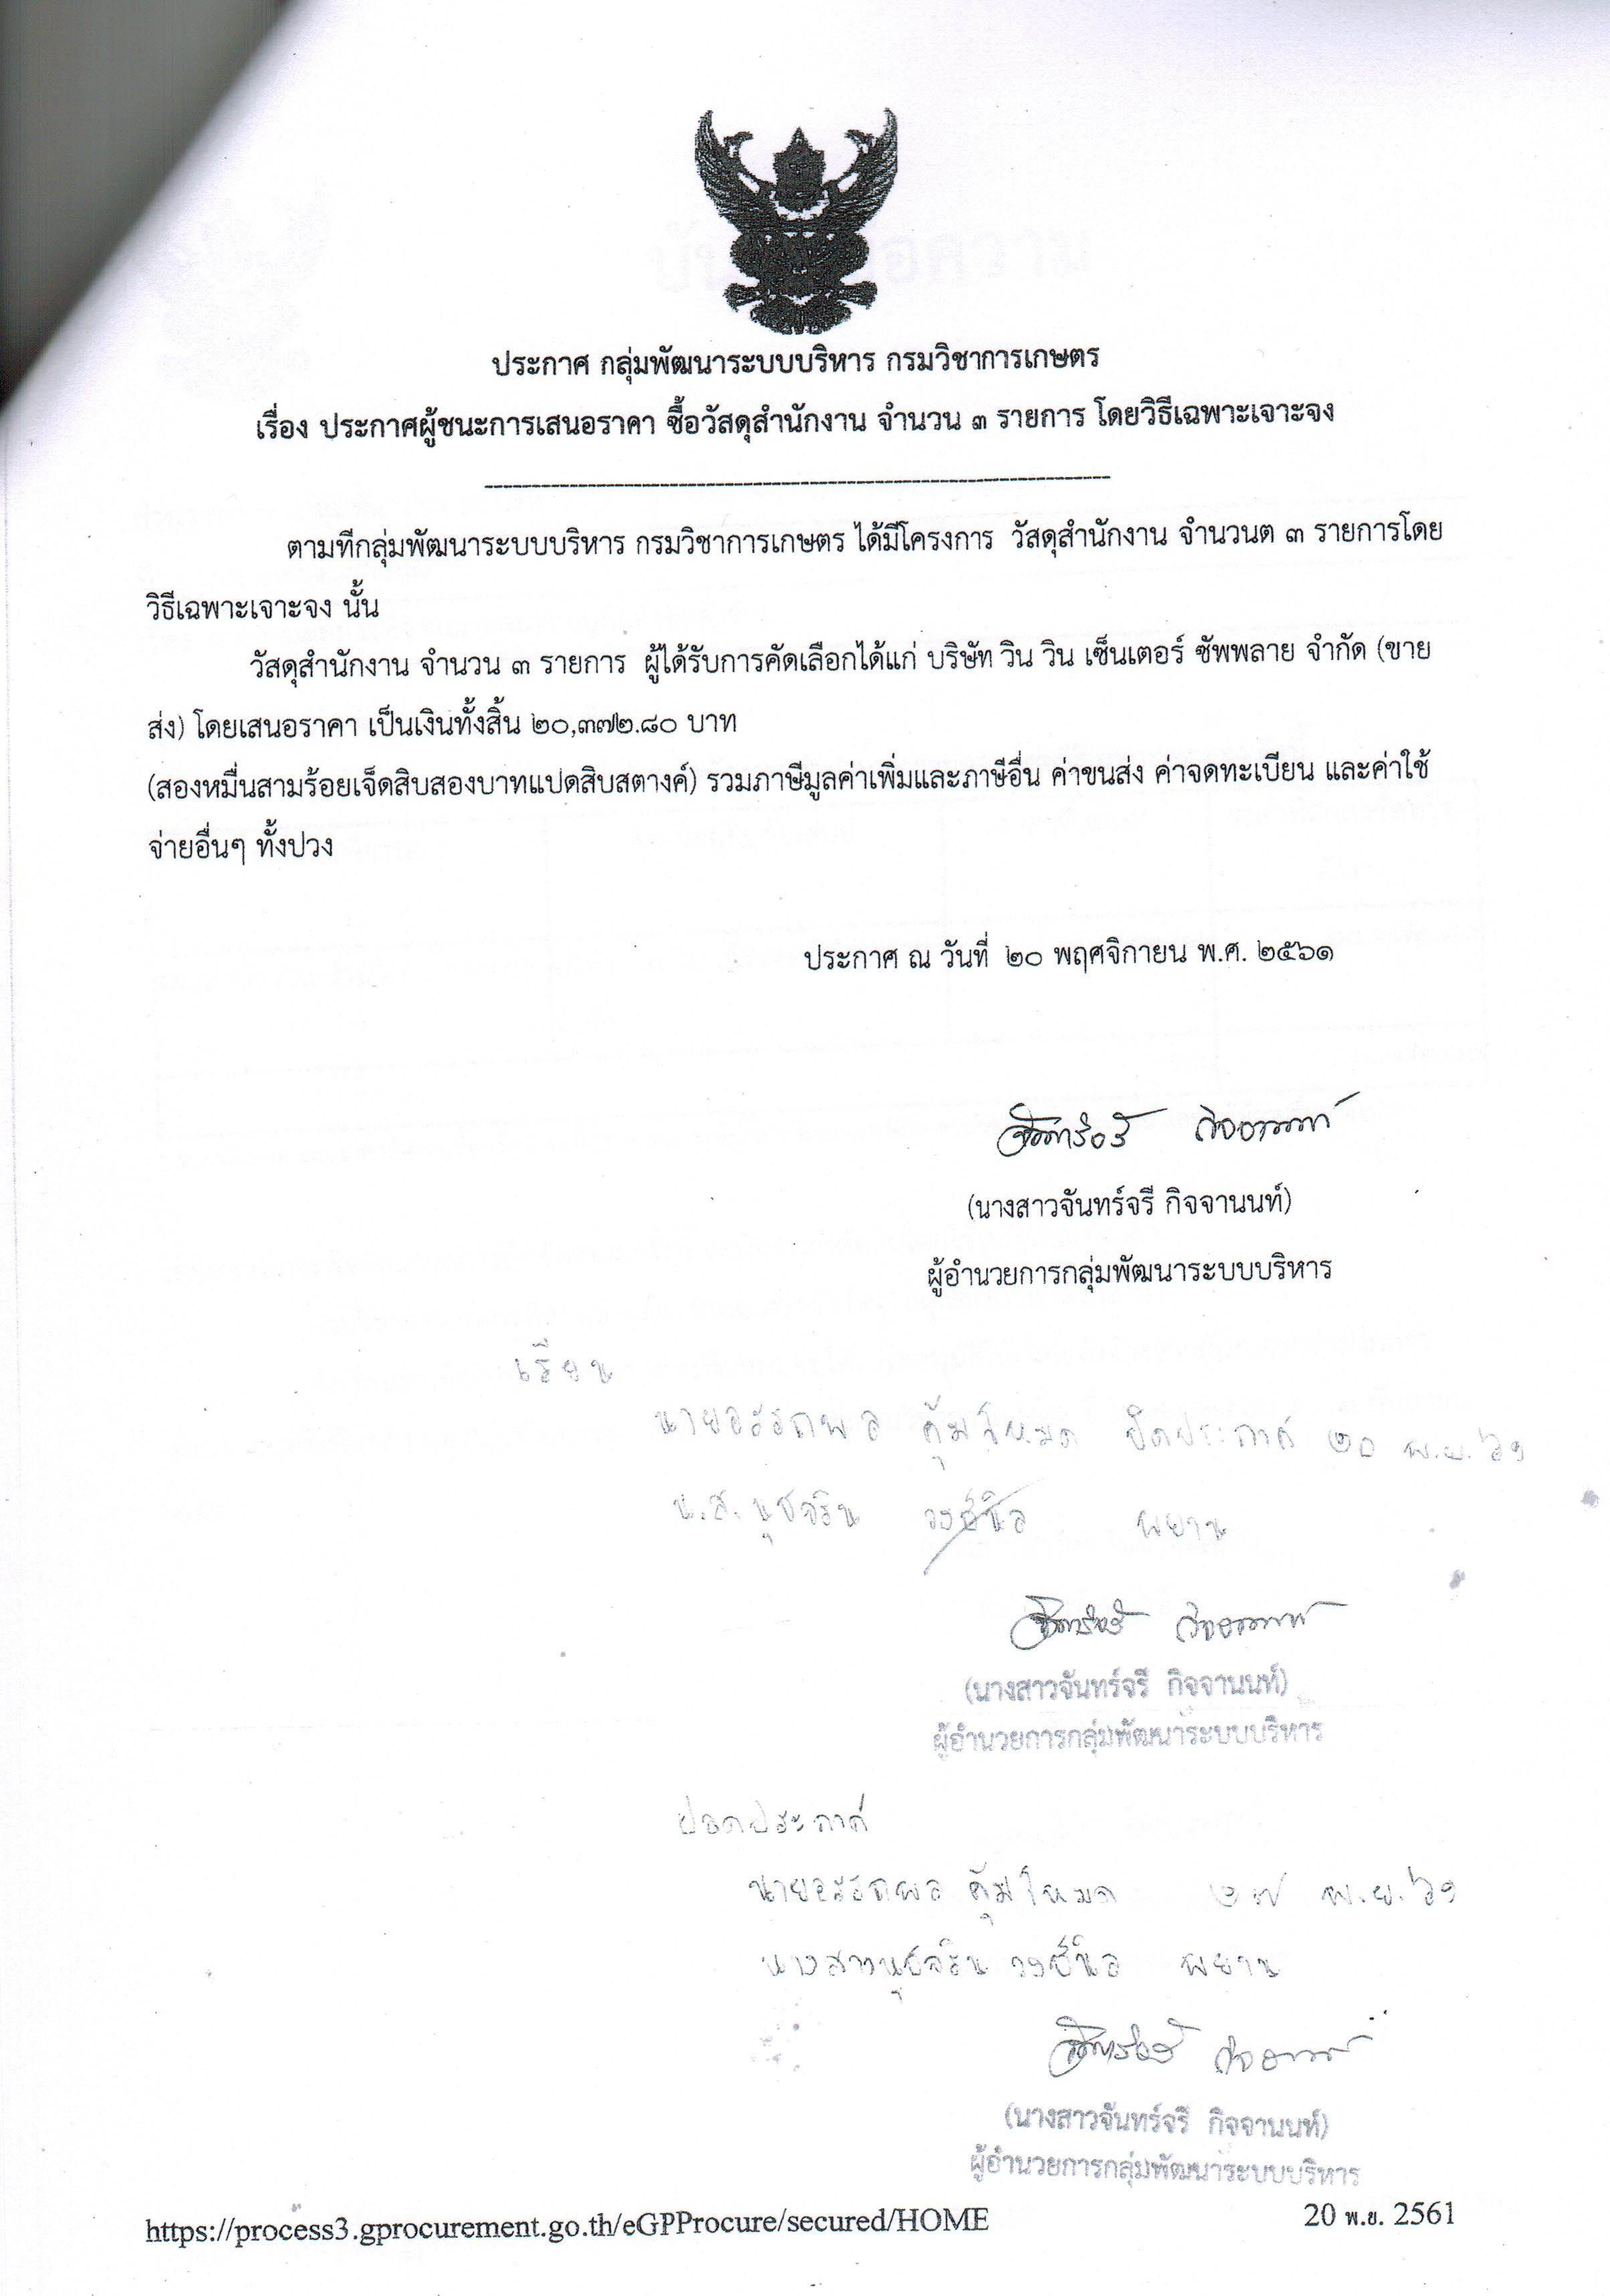 ประกาศ กลุ่มพัฒนาระบบบริหาร กรมวิชาการเกษตร
เรื่อง ประกาศผู้ชนะการเสนอราคา ซื้อวัสดุสำนักงาน จำนวน ๓ รายการ โดยวิธีเฉพาะเจาะจง
ตามทีกลุ่มพัฒนาระบบบริหาร กรมวิชาการเกษตร ได้มีโครงการ วัสดุสำนักงาน จำนวนต ๓ รายการโดย
วิธีเฉพาะเจาะจง นั้น
วัสดุสำนักงาน จำนวน ๓ รายการ ผู้ได้รับการคัดเลือกได้แก่ บริษัท วิน วิน เซ็นเตอร์ ซัพพลาย จำกัด (ขาย
ส่ง) โดยเสนอราคา เป็นเงินทั้งสิ้น ๒๐,๓๗๒.๘๐ บาท
(สองหมื่นสามร้อยเจ็ดสิบสองบาทแปดสิบสตางค์) รวมภาษีมูลค่าเพิ่มและภาษีอื่น ค่าขนส่ง ค่าจดทะเบียน และค่าใช้
จ่ายอื่นๆ ทั้งปวง
ประกาศ ณ วันที่ ๒๐ พฤศจิกายน พ.ศ. ๒๕๖๑
(นางสาวจันทร์จรี กิจจานนท์)
ผู้อำนวยการกลุ่มพัฒนาระบบบริหาร
เรียน
นายอรรถพล คุ้มโหมด ปิดประกาศ ๒๐ พ.ย. ๖๑
น.ส. นุชจริน พยาน
(นางสาวจันทร์จรี กิจจานนท์)
ผู้อำนวยการกลุ่มพัฒนาระบบบริหาร
ปลดประกาศ
นายอรรถพล คุ้มโหมด ๒๗ พ.ย. ๖๑
นางสาวนุชจริน พยาน
(นางสาวจันทร์จรี กิจจานนท์)
ผู้อำนวยการกลุ่มพัฒนาระบบบริหาร
https://process3.gprocurement.go.th/eGPProcure/secured/HOME
20 พ.ย. 2561